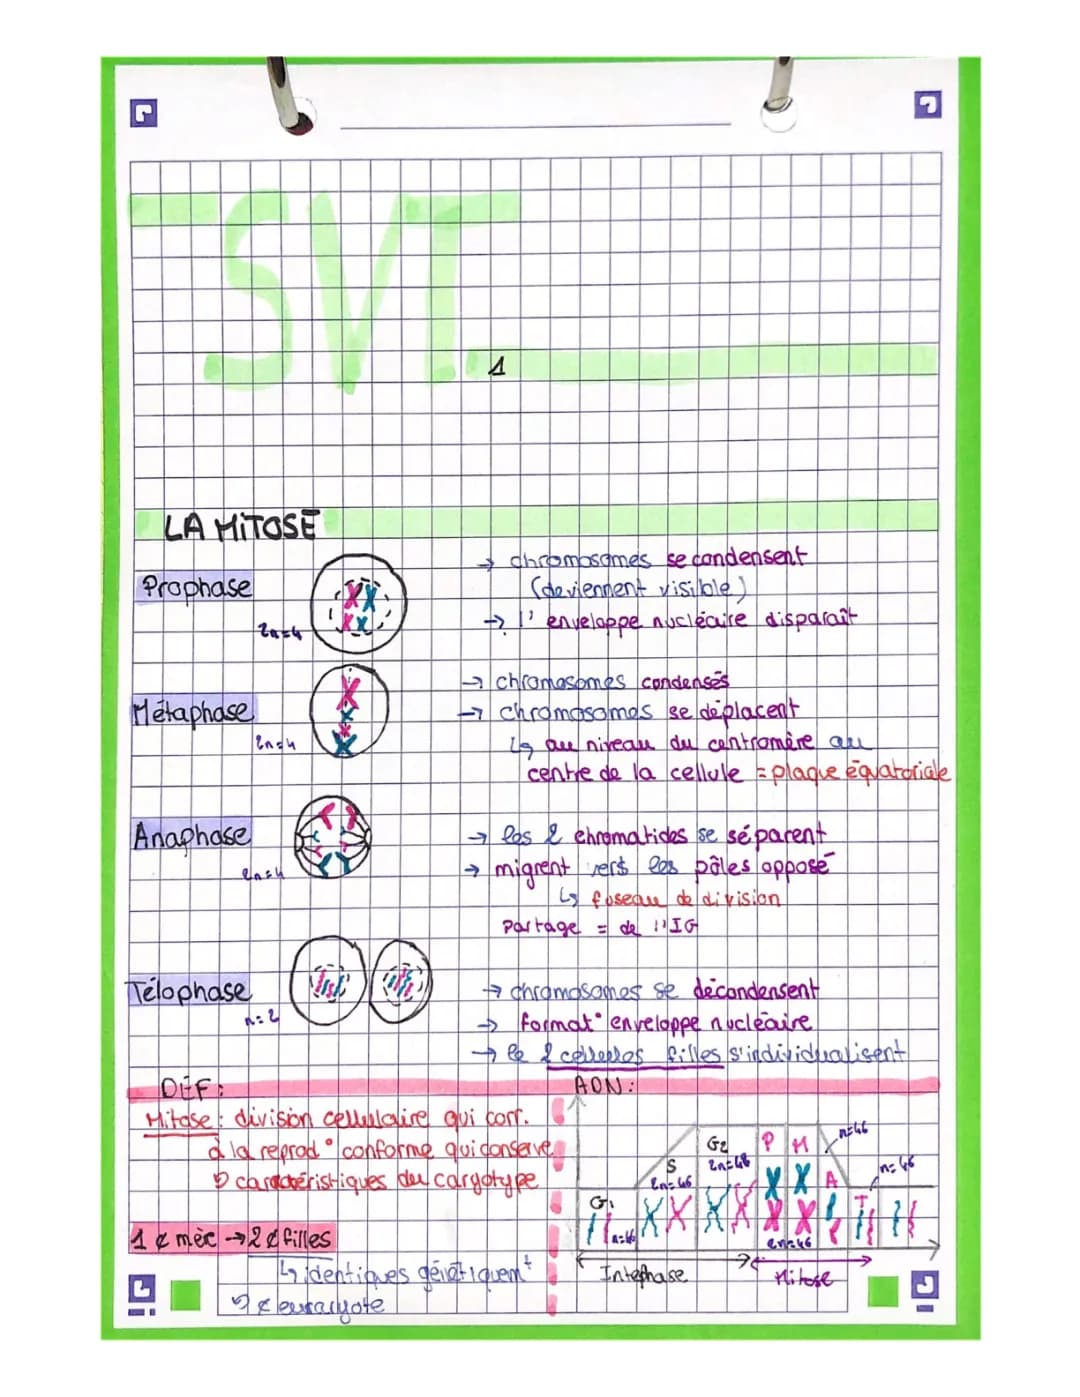 SVT
1
LA MITOSE
Prophase
2n=4
→ chromosomes se condensent
(deviennent visible)
→ l' enveloppe nucléaire disparaît
Métaphase
2n=4
→ chromosomes condensés
→ chromosomes se déplacent
↳ au niveau du centromère au
centre de la cellule = plaque équatoriale
Anaphase
2n=4
→ les 2 chromatides se séparent
→ migrent vers les pôles opposé
↳ fuseau de division
Partage = de l'IG
Télophase
n=2
→ chromosomes se décondensent
→ format° enveloppe nucléaire
→ le 2 cellules filles s'individualisent
DEF:
Mitose : division cellulaire qui corr.
à la reprod° conforme qui conserve
caractéristiques du caryotype
1 ¢ mèr → 2 ¢ filles
↳ identiques génétiquemt
¢ eucaryote
ADN:
G1
n=46
S
2n=46
G2
2n=46
P M
A
T
2n=46
n=46
n=46
Intephase
Mitose